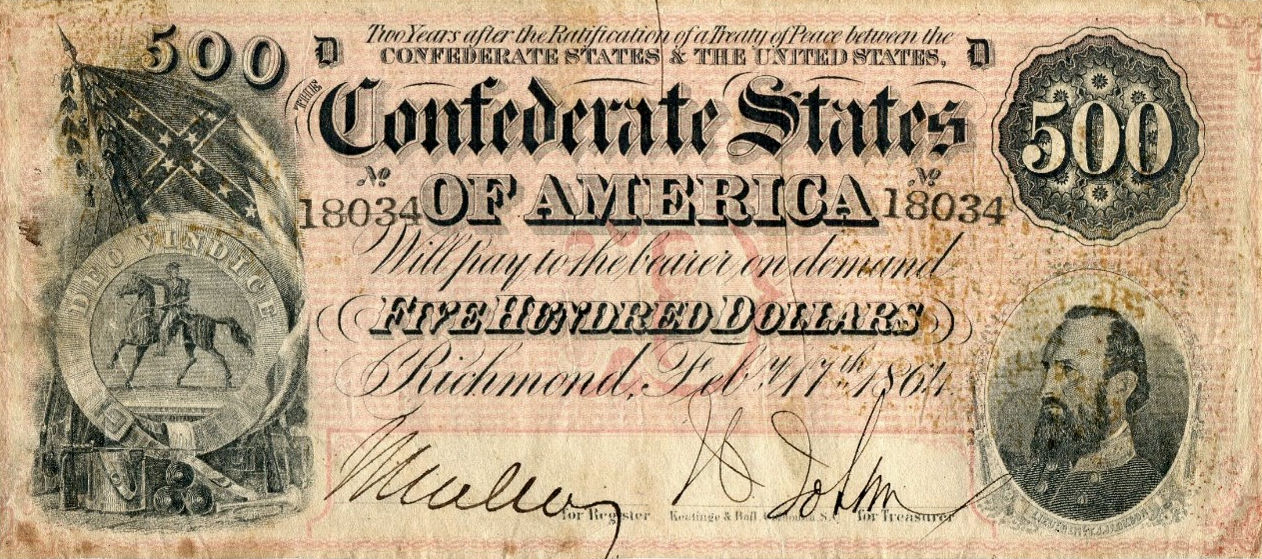 500 D Two Years after the Ratification of a Treaty of Peace between the D
CONFEDERATE STATES & THE UNITED STATES,
500
THE Confederate States
No No
18034 OF AMERICA 18034
DEO VINDICE
Will pay to the bearer on demand
FIVE HUNDRED DOLLARS
Richmond, Feby 17th 1864
for Register Keatinge & Ball, S.C. for Treasurer